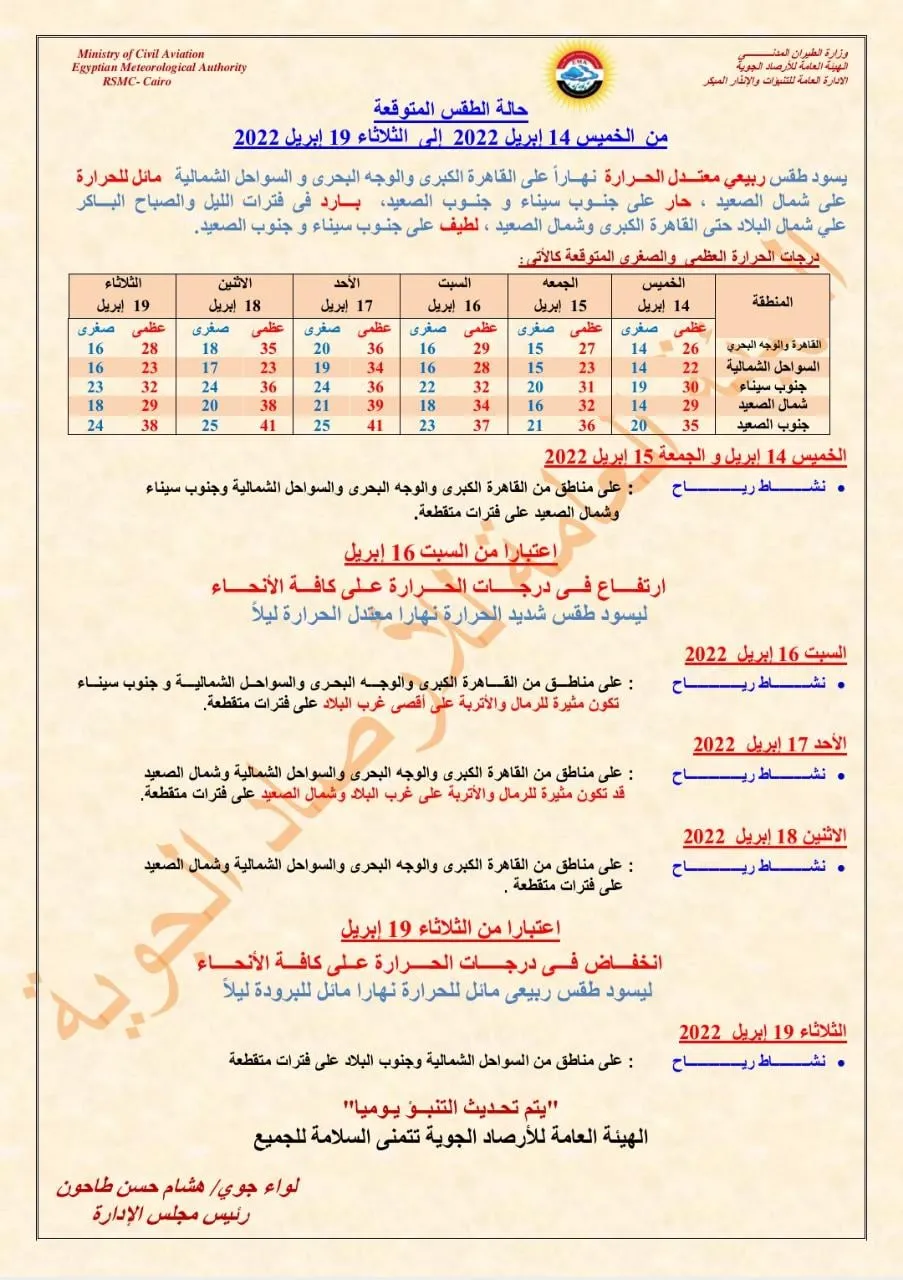 Ministry of Civil Aviation
Egyptian Meteorological Authority
RSMC- Cairo
وزارة الطيران المدنـــي
الهيئة العامة للأرصاد الجوية
الادارة العامة للتنبؤات والإنذار المبكر
EMA
حالة الطقس المتوقعة
من الخميس 14 إبريل 2022 إلى الثلاثاء 19 إبريل 2022
يسود طقس ربيعي معتـدل الحـرارة نهـاراً على القاهرة الكبرى والوجه البحرى و السواحل الشمالية مائل للحرارة
على شمال الصعيد ، حار على جنـوب سيناء و جنـوب الصعيد، بـارد فى فترات الليل والصباح البـاكر
علي شمال البلاد حتى القاهرة الكبرى وشمال الصعيد ، لطيف على جنـوب سيناء و جنوب الصعيد.
درجات الحرارة العظمى والصغرى المتوقعة كالأتى:
المنطقة الخميس الجمعه السبت الأحد الاثنين الثلاثاء
14 إبريل 15 إبريل 16 إبريل 17 إبريل 18 إبريل 19 إبريل
عظمى صغرى عظمى صغرى عظمى صغرى عظمى صغرى عظمى صغرى عظمى صغرى
القاهرة والوجه البحري 26 14 27 15 29 16 36 20 35 18 28 16
السواحل الشمالية 22 14 23 15 28 16 34 19 23 17 23 16
جنوب سيناء 30 19 31 20 32 22 36 24 36 24 32 23
شمال الصعيد 29 14 32 16 34 18 39 21 38 20 29 18
جنوب الصعيد 35 20 36 21 37 23 41 25 41 25 38 24
الخميس 14 إبريل و الجمعة 15 إبريل 2022
• نشـــاط ريـــــاح : على مناطق من القاهرة الكبرى والوجه البحرى والسواحل الشمالية وجنوب سيناء
وشمال الصعيد على فترات متقطعة.
اعتبارا من السبت 16 إبريل
ارتفـاع فـى درجـات الحـرارة علـى كافـة الأنحـاء
ليسود طقس شديد الحرارة نهارا معتدل الحرارة ليلاً
السبت 16 إبريل 2022
• نشـــاط ريـــــاح : على مناطـق من القـاهرة الكبرى والوجـه البحـرى والسواحـل الشماليـة و جنوب سينـاء
تكون مثيرة للرمال والأتربة على أقصى غرب البلاد على فترات متقطعة.
الأحد 17 إبريل 2022
• نشـــاط ريـــــاح : على مناطق من القاهرة الكبرى والوجه البحرى والسواحل الشمالية وشمال الصعيد
قد تكون مثيرة للرمال والأتربة على غرب البلاد وشمال الصعيد على فترات متقطعة.
الاثنين 18 إبريل 2022
• نشـــاط ريـــــاح : على مناطق من القاهرة الكبرى والوجه البحرى والسواحل الشمالية وشمال الصعيد
على فترات متقطعة .
اعتبارا من الثلاثاء 19 إبريل
انخفـاض فـى درجـات الحـرارة علـى كافـة الأنحـاء
ليسود طقس ربيعى مائل للحرارة نهارا مائل للبرودة ليلاً
الثلاثاء 19 إبريل 2022
• نشـــاط ريـــــاح : على مناطق من السواحل الشمالية وجنوب البلاد على فترات متقطعة
"يتم تحـديث التنبـؤ يـوميا"
الهيئة العامة للأرصاد الجوية تتمنى السلامة للجميع
لواء جوي/ هشام حسن طاحون
رئيس مجلس الإدارة
الهيئة العامة للأرصاد الجوية